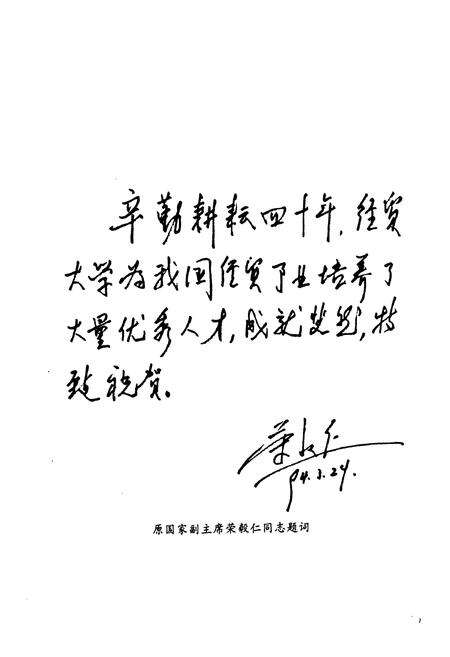 辛勤耕耘四十年,经贸
大学为我国经贸事业培养了
大量优秀人才,成就斐然,特
致祝贺。
荣毅仁
94.3.24.
原国家副主席荣毅仁同志题词
1